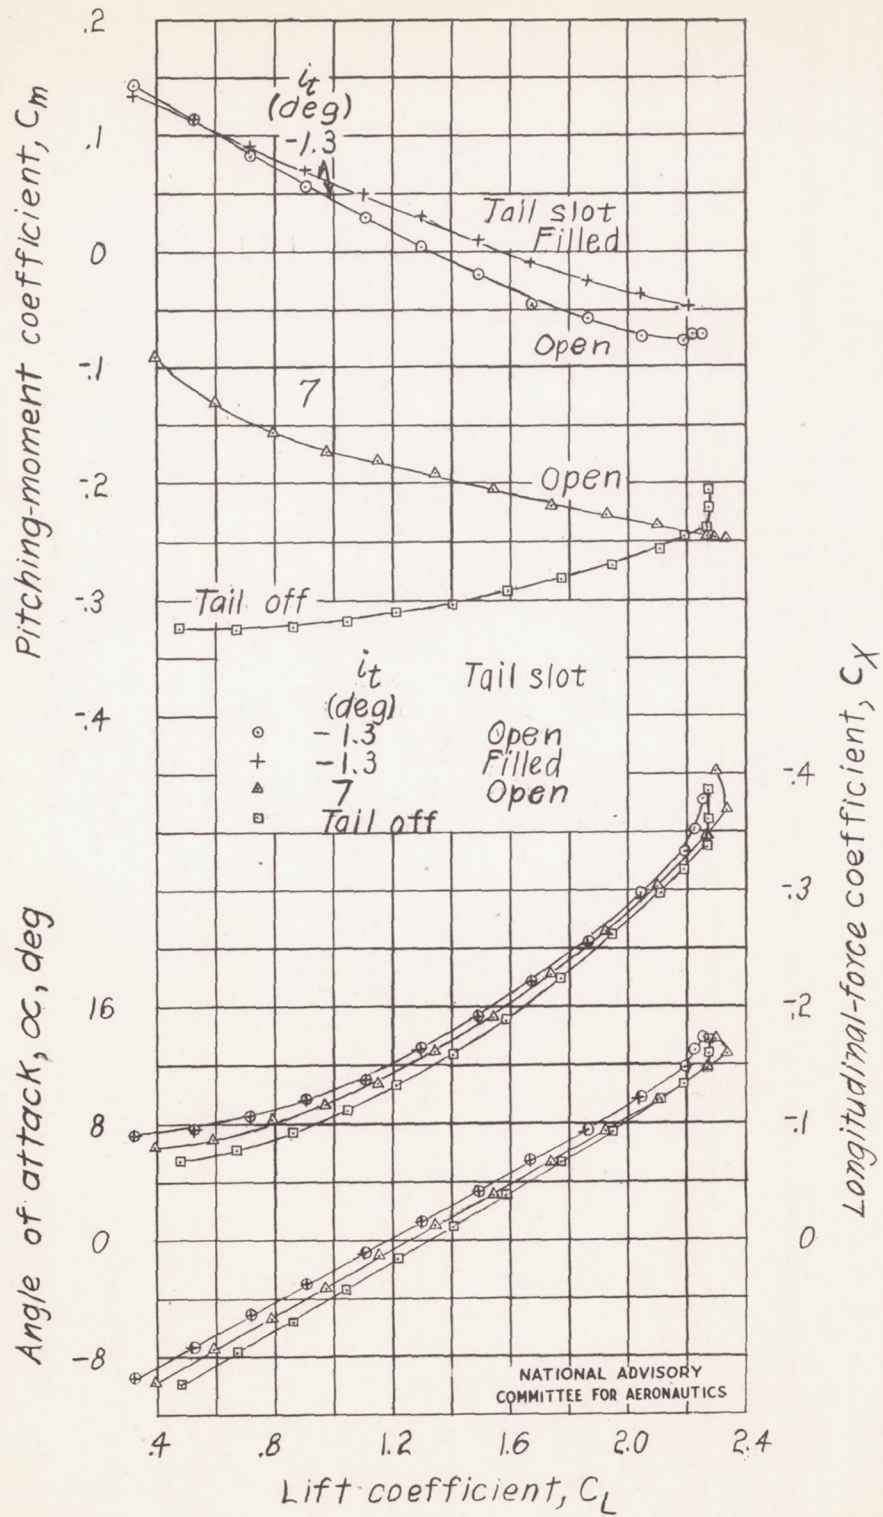 .2
.1
0
-.1
-.2
-.3
-.4
Pitching-moment coefficient, Cm
it
(deg)
-1.3
Tail slot
Filled
Open
7
Open
Tail off
it Tail slot
(deg)
-1.3 Open
-1.3 Filled
7 Open
Tail off
-.4
-.3
-.2
-.1
0
Longitudinal-force coefficient, CX
16
8
0
-8
Angle of attack, α, deg
NATIONAL ADVISORY
COMMITTEE FOR AERONAUTICS
.4 .8 1.2 1.6 2.0 2.4
Lift coefficient, CL